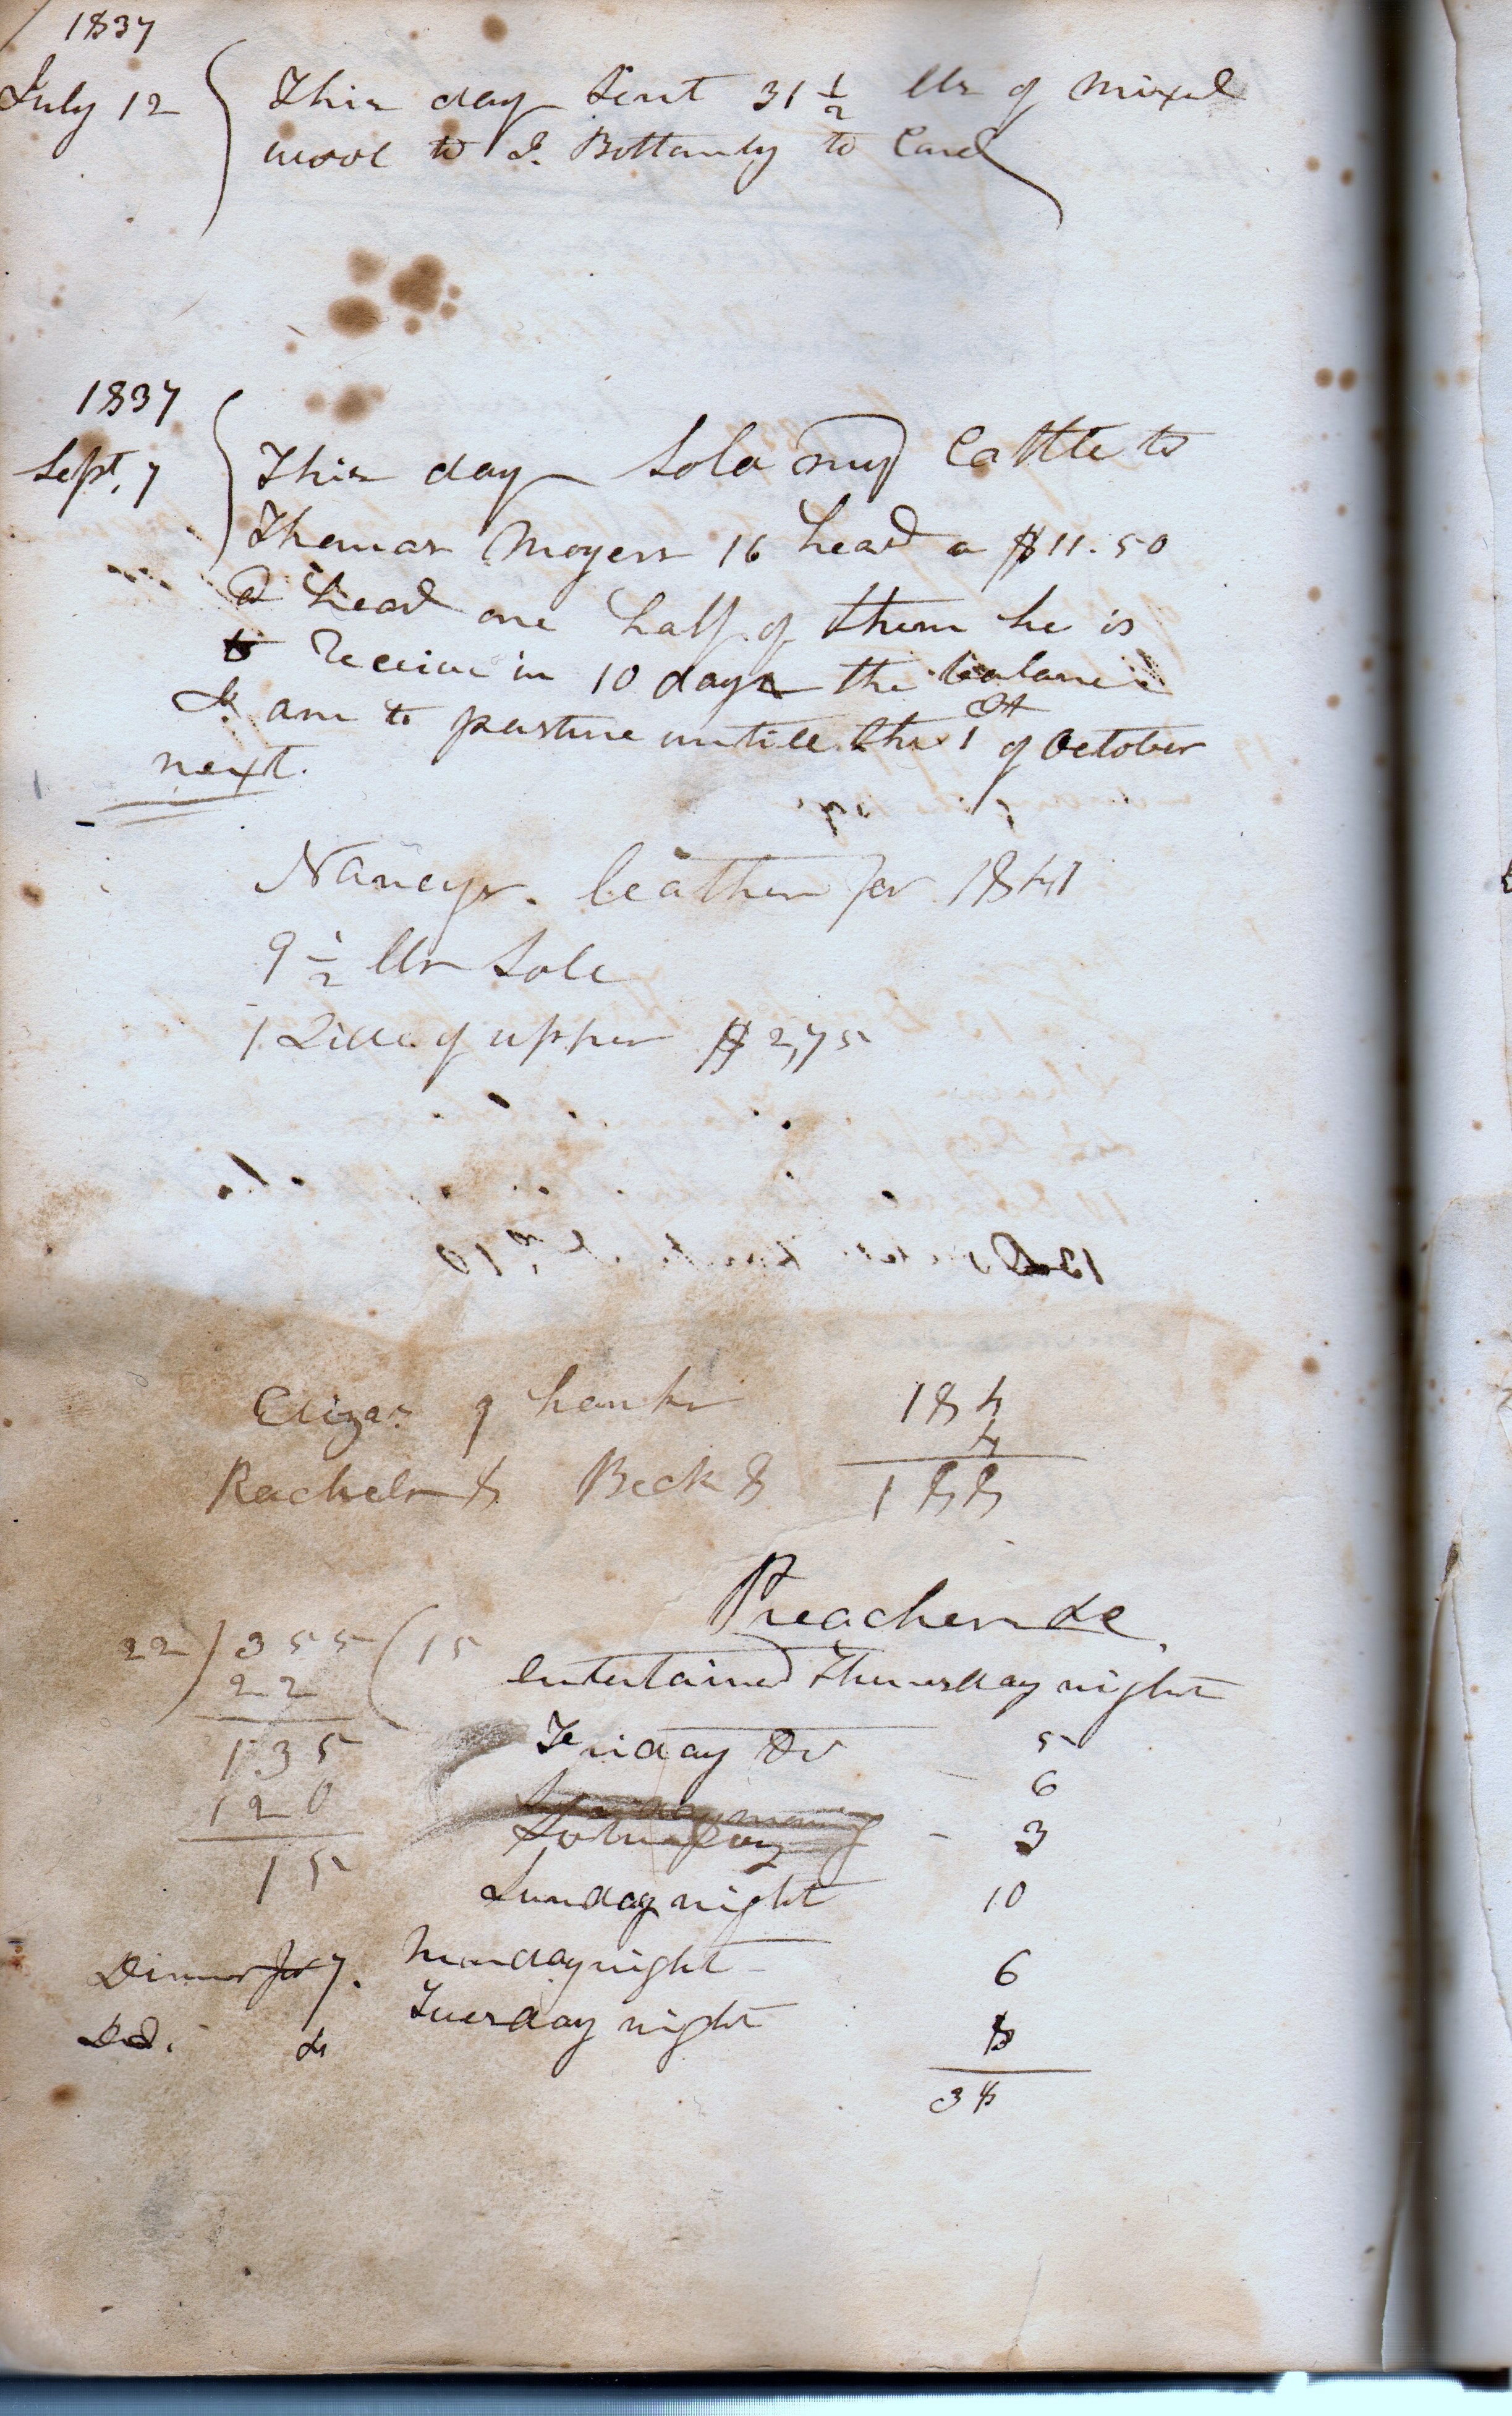 1837
July 12 This day Sent 31 1/2 lbs of mixed
wool to J. Bottomly to Card
1837
Sept. 7 This day Sold my Cattle to
Thomas Moyers 16 head a $11.50
a head one half of them he is
to Receive in 10 days the balance
I am to pasture untill the 1st of October
next.
Nancys. leather for 1841
9 1/2 lbs Sole
1 Side of upper $2,75
Elizas 9 hanks 184
4
Rachels 8 Beck 8 188
Preachers &c
22) 355 (15 entertained Thursday night
22
Friday Do 5
135
6
120
Saturday - 3
15
Sunday night 10
Dinner for 7. Monday night 6
Do. do Tuesday night 8
38